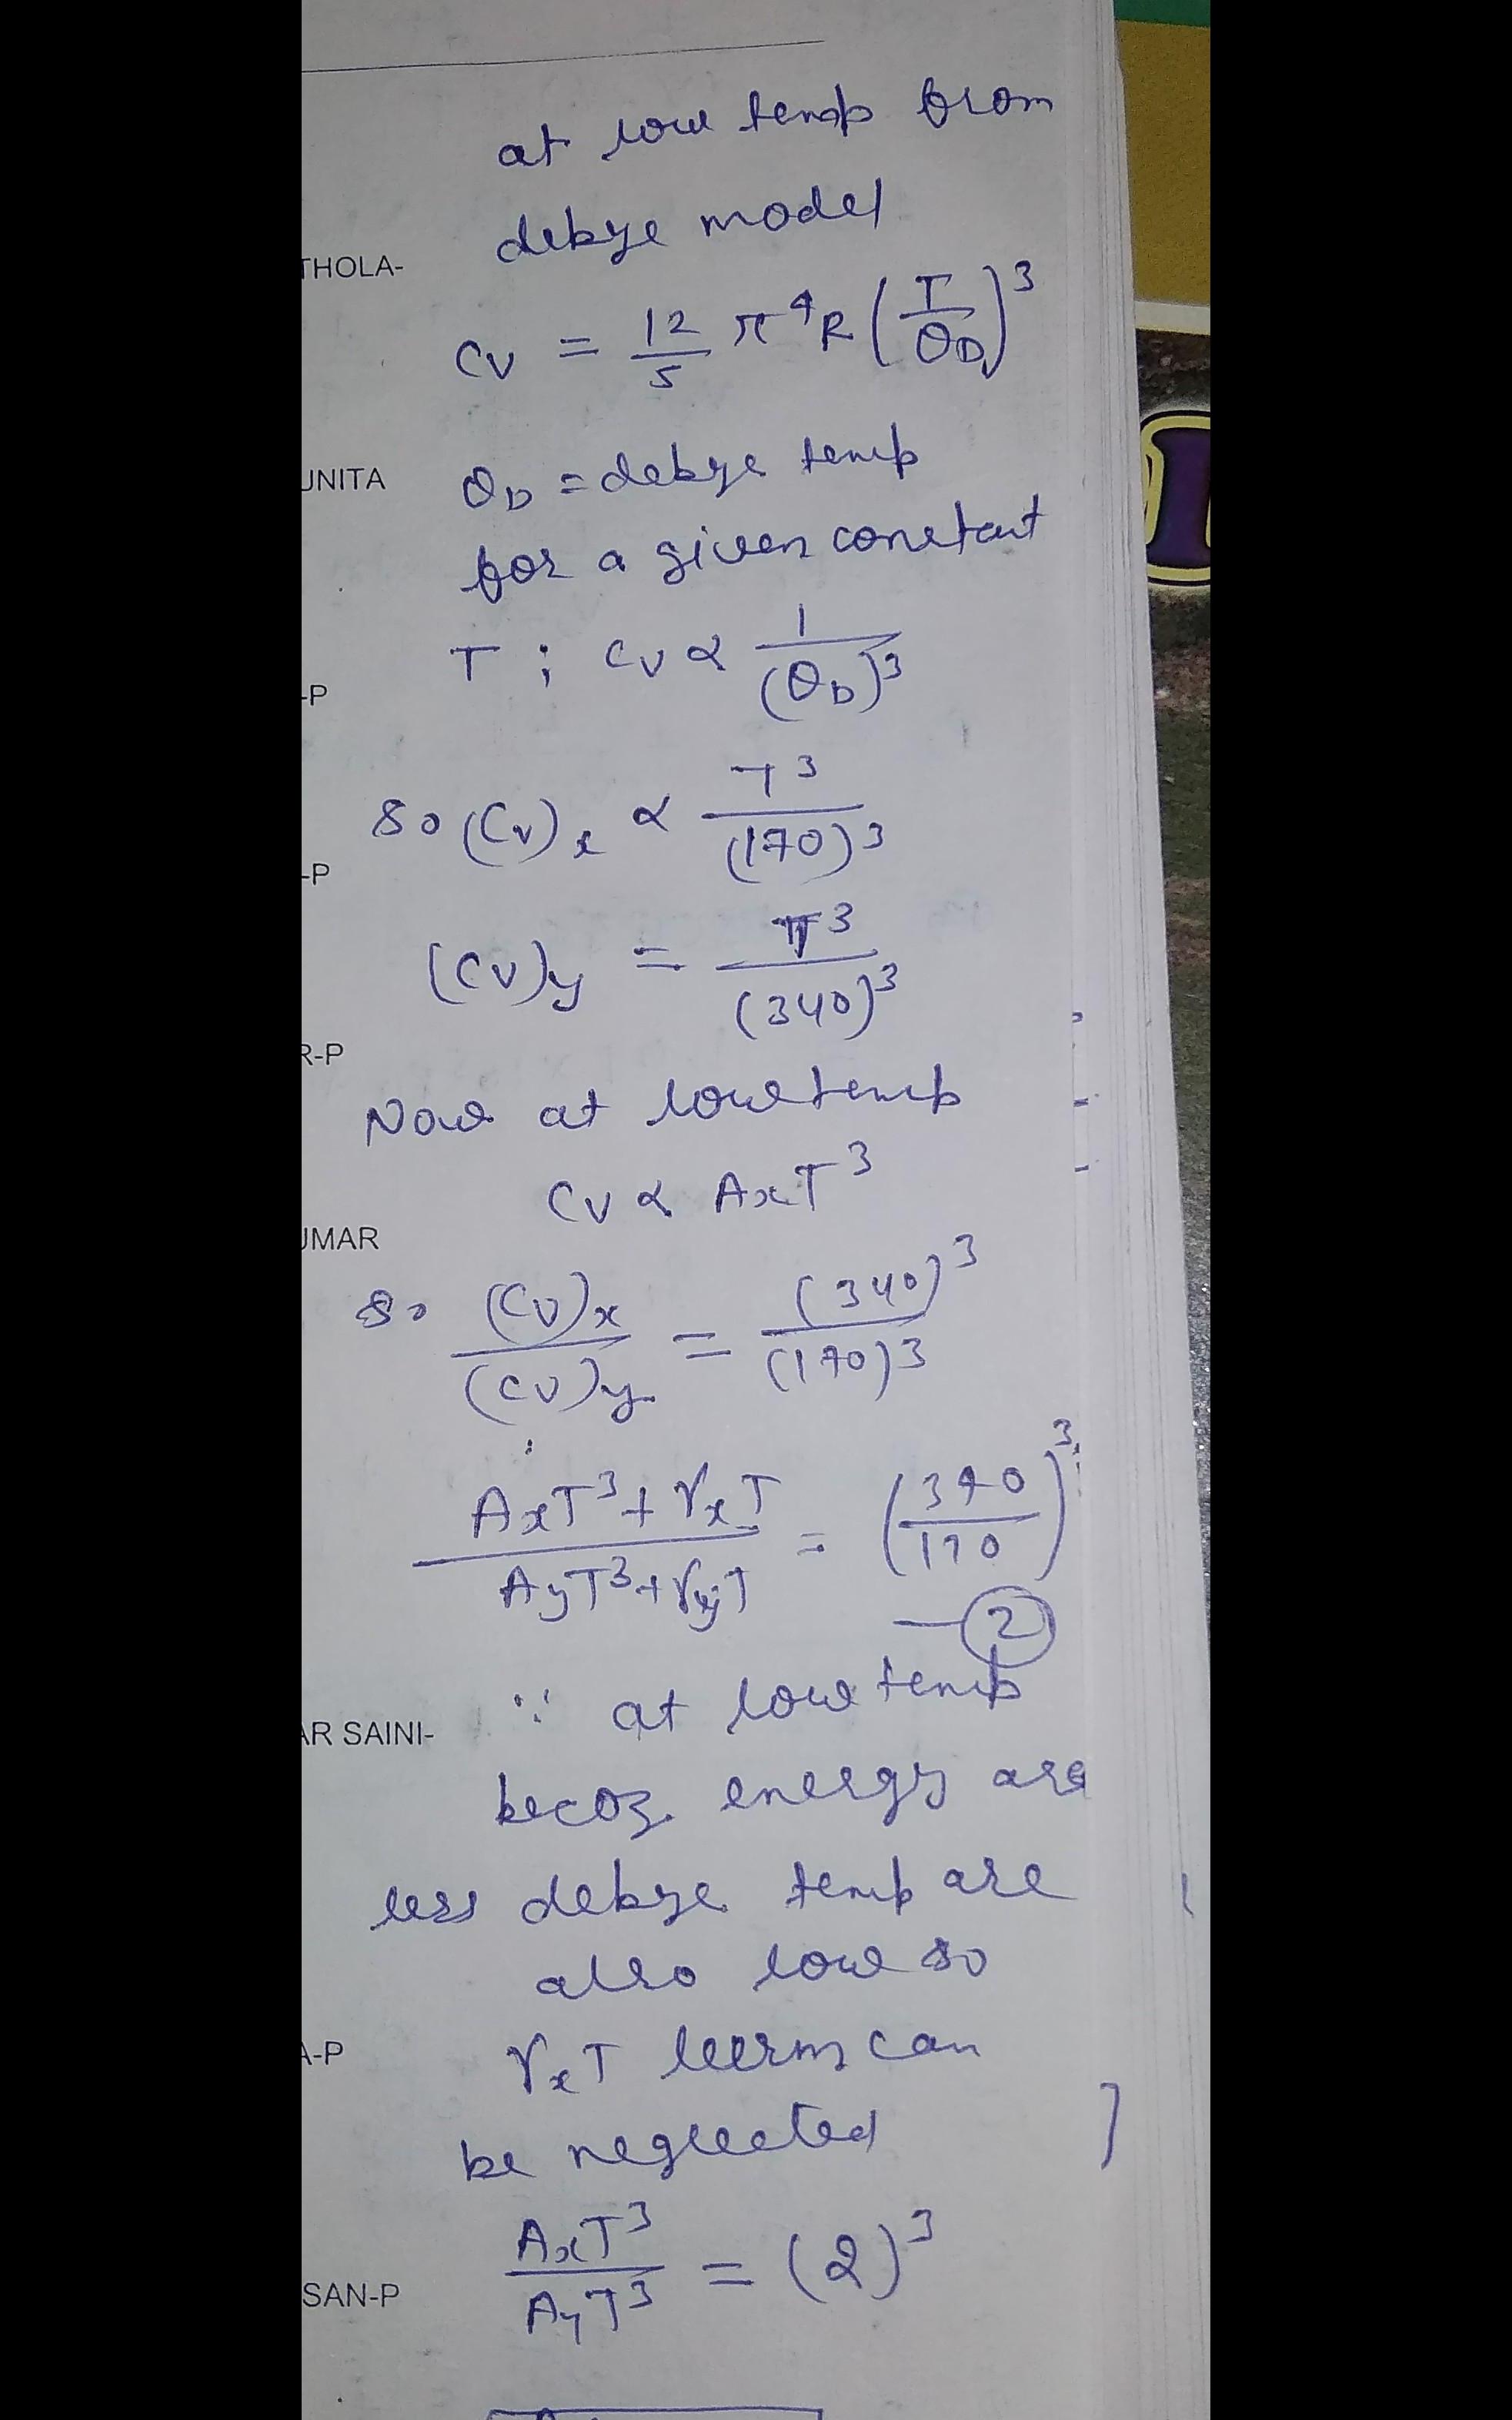 at low temp from
debye model
THOLA-
Cv = 12/5 π⁴R (T/θD)³
UNITA
θD = debye temp
for a given constant
T ; Cv ∝ 1/(θD)³
-P
so (Cv)x ∝ T³/(170)³
-P
(Cv)y = T³/(340)³
R-P
Now at low temp
Cv ∝ AxT³
UMAR
so (Cv)x/(Cv)y = (340)³/(170)³
AxT³ + γxT / AyT³ + γyT = (340/170)³
— 2
∵ at low temp
AR SAINI-
becoz energy are
less debye temp are
also low so
A-P
γxT term can
be neglected ]
AxT³/AyT³ = (2)³
SAN-P